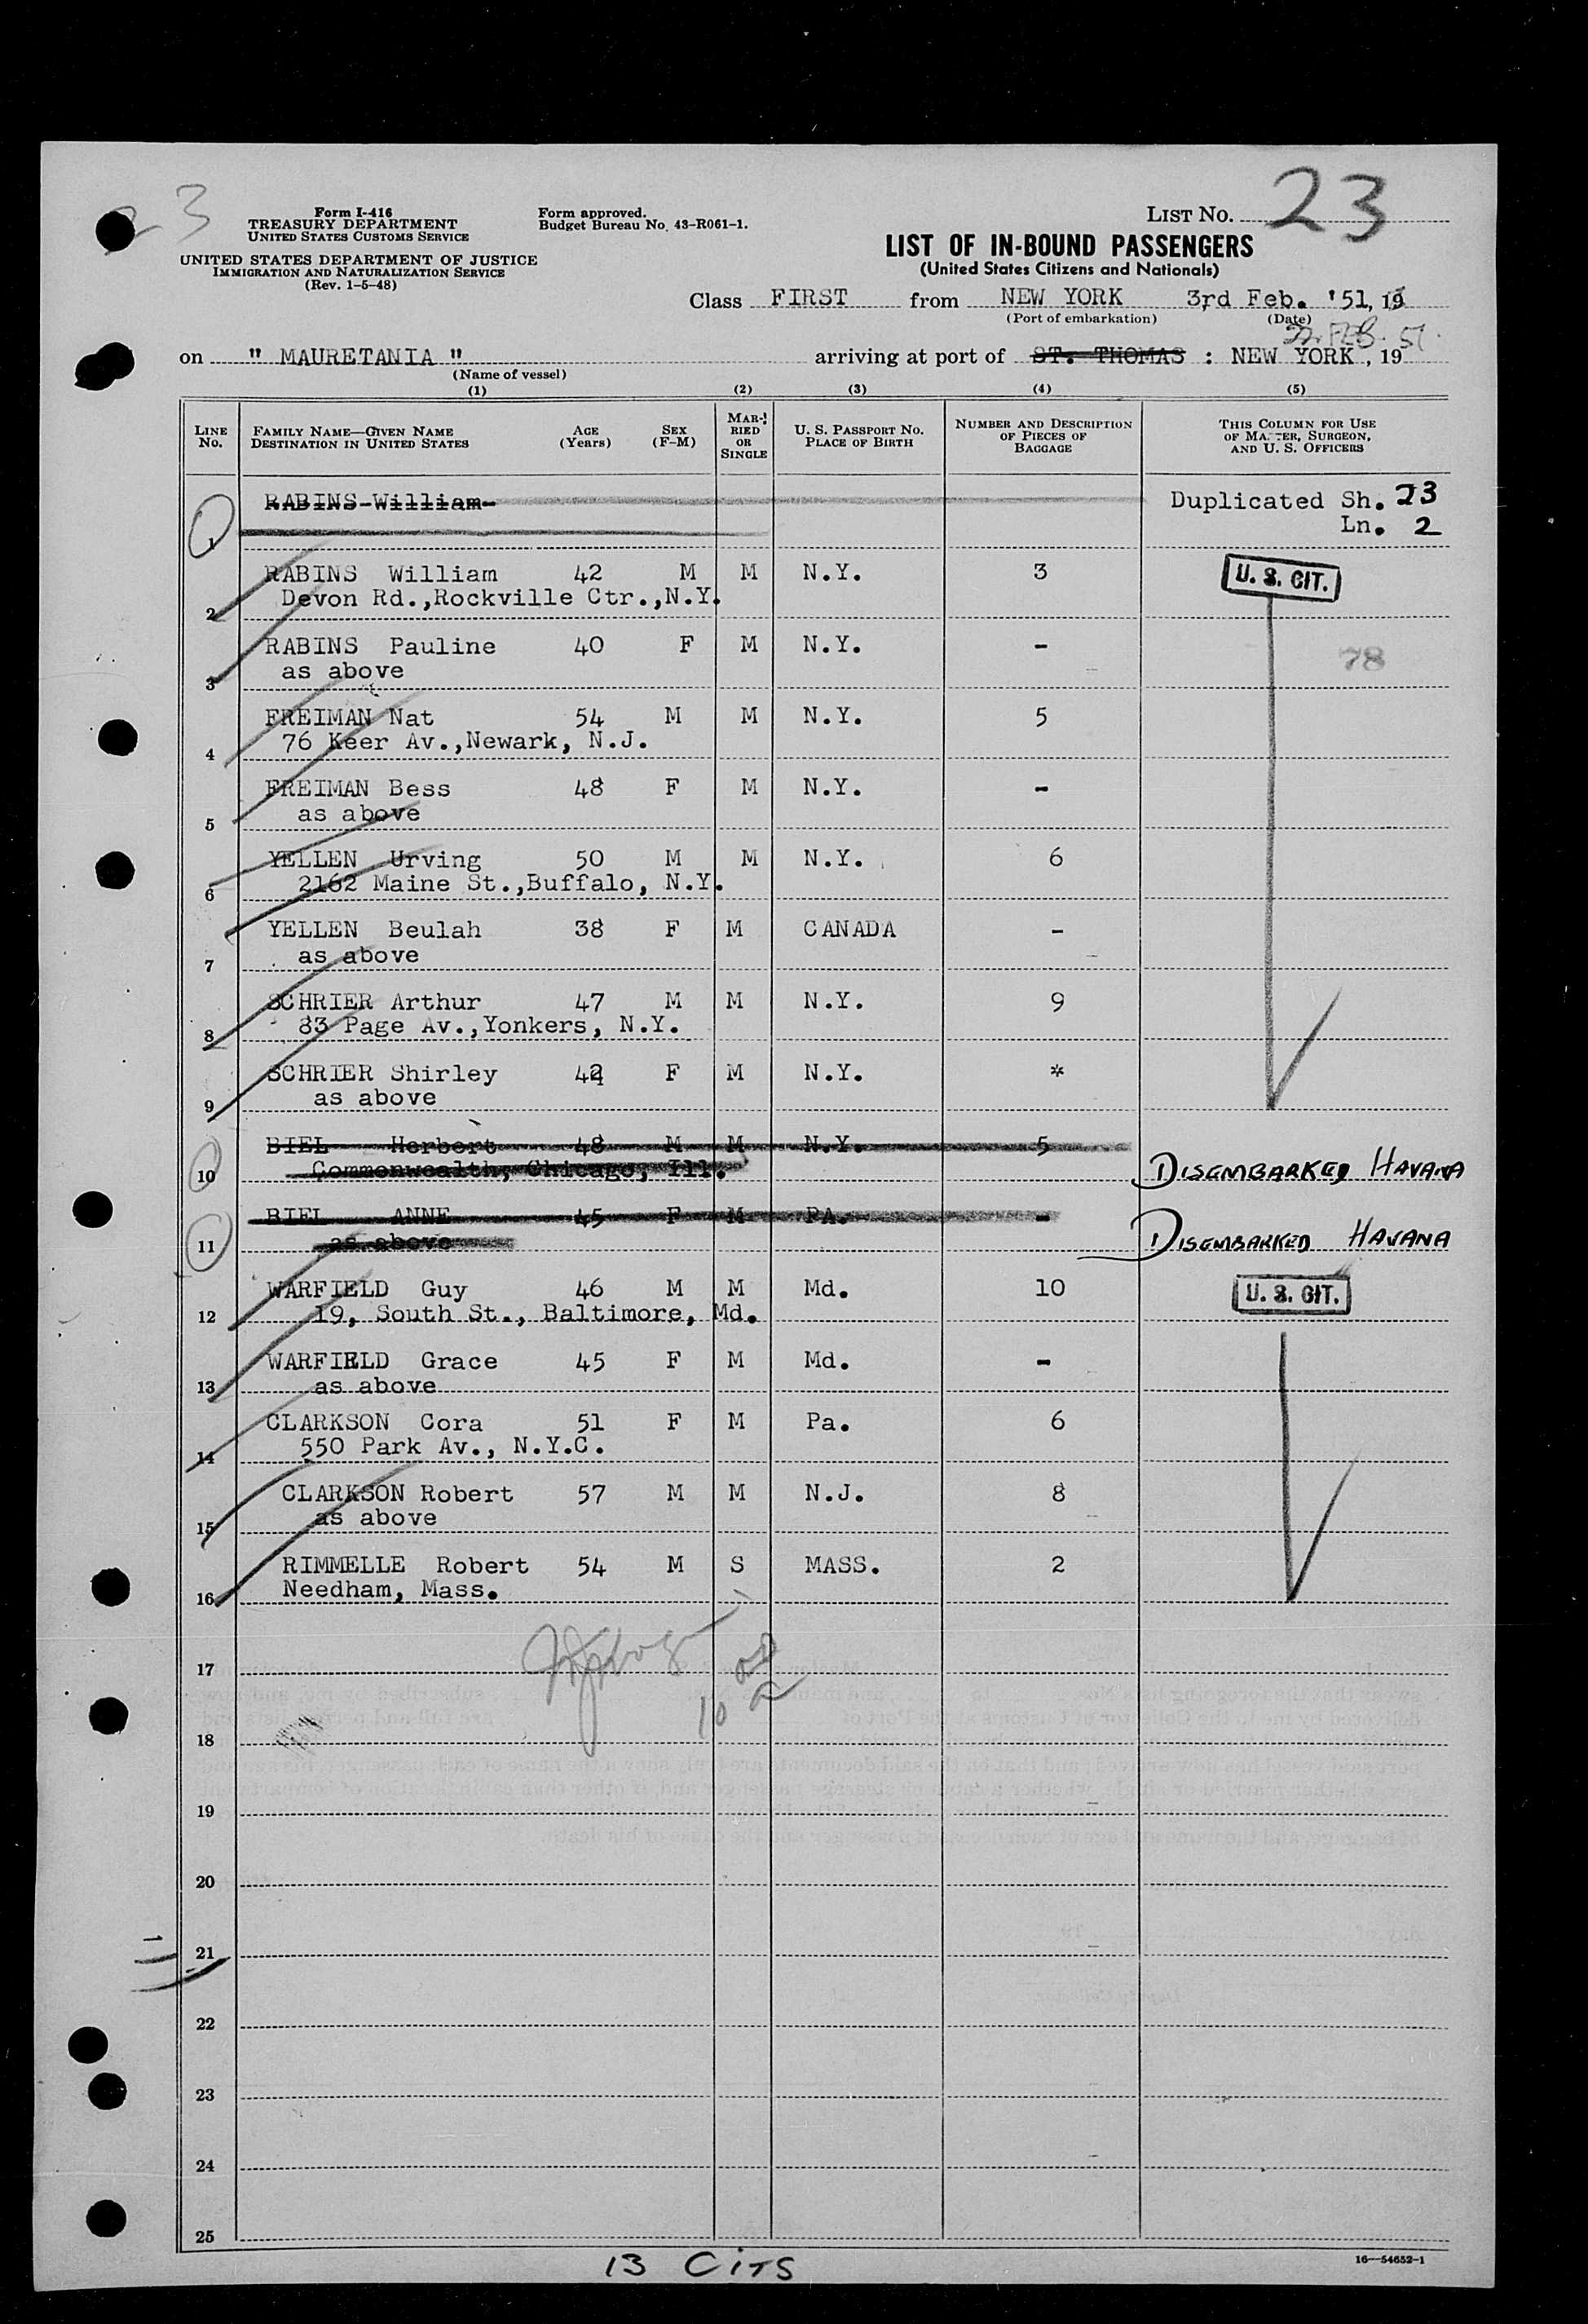 23
Form I-416
TREASURY DEPARTMENT
UNITED STATES CUSTOMS SERVICE
UNITED STATES DEPARTMENT OF JUSTICE
IMMIGRATION AND NATURALIZATION SERVICE
(Rev. 1-5-48)
Form approved.
Budget Bureau No. 43-R061-1.
LIST NO. 23
LIST OF IN-BOUND PASSENGERS
(United States Citizens and Nationals)
Class FIRST from NEW YORK 3rd Feb. '51, 19
(Port of embarkation) (Date)
FEB. 51
on " MAURETANIA " arriving at port of ST. THOMAS : NEW YORK, 19
(Name of vessel)
(1) (2) (3) (4) (5)
LINE NO. FAMILY NAME—GIVEN NAME DESTINATION IN UNITED STATES AGE (Years) SEX (F-M) MARRIED OR SINGLE U. S. PASSPORT NO. PLACE OF BIRTH NUMBER AND DESCRIPTION OF PIECES OF BAGGAGE THIS COLUMN FOR USE OF MASTER, SURGEON, AND U. S. OFFICERS
RABINS-William- Duplicated Sh. 23
1 Ln. 2
RABINS William 42 M M N.Y. 3 U. S. CIT.
2 Devon Rd.,Rockville Ctr.,N.Y.
RABINS Pauline 40 F M N.Y. - 78
3 as above
FREIMAN Nat 54 M M N.Y. 5
4 76 Keer Av.,Newark, N.J.
FREIMAN Bess 48 F M N.Y. -
5 as above
YELLEN Urving 50 M M N.Y. 6
6 2162 Maine St.,Buffalo, N.Y.
YELLEN Beulah 38 F M CANADA -
7 as above
SCHRIER Arthur 47 M M N.Y. 9
8 83 Page Av.,Yonkers, N.Y.
SCHRIER Shirley 42 F M N.Y. *
9 as above
BIEL Herbert 48 M M N.Y. 5
10 Commonwealth, Chicago, Ill. DISEMBARKED HAVANA
BIEL ANNE 45 F M PA. -
11 as above DISEMBARKED HAVANA
WARFIELD Guy 46 M M Md. 10 U. S. CIT.
12 19, South St., Baltimore, Md.
WARFIELD Grace 45 F M Md. -
13 as above
CLARKSON Cora 51 F M Pa. 6
14 550 Park Av., N.Y.C.
CLARKSON Robert 57 M M N.J. 8
15 as above
RIMMELLE Robert 54 M S MASS. 2
16 Needham, Mass.
17
10
18
19
20
21
22
23
24
25
13 CITS
16—54652-1